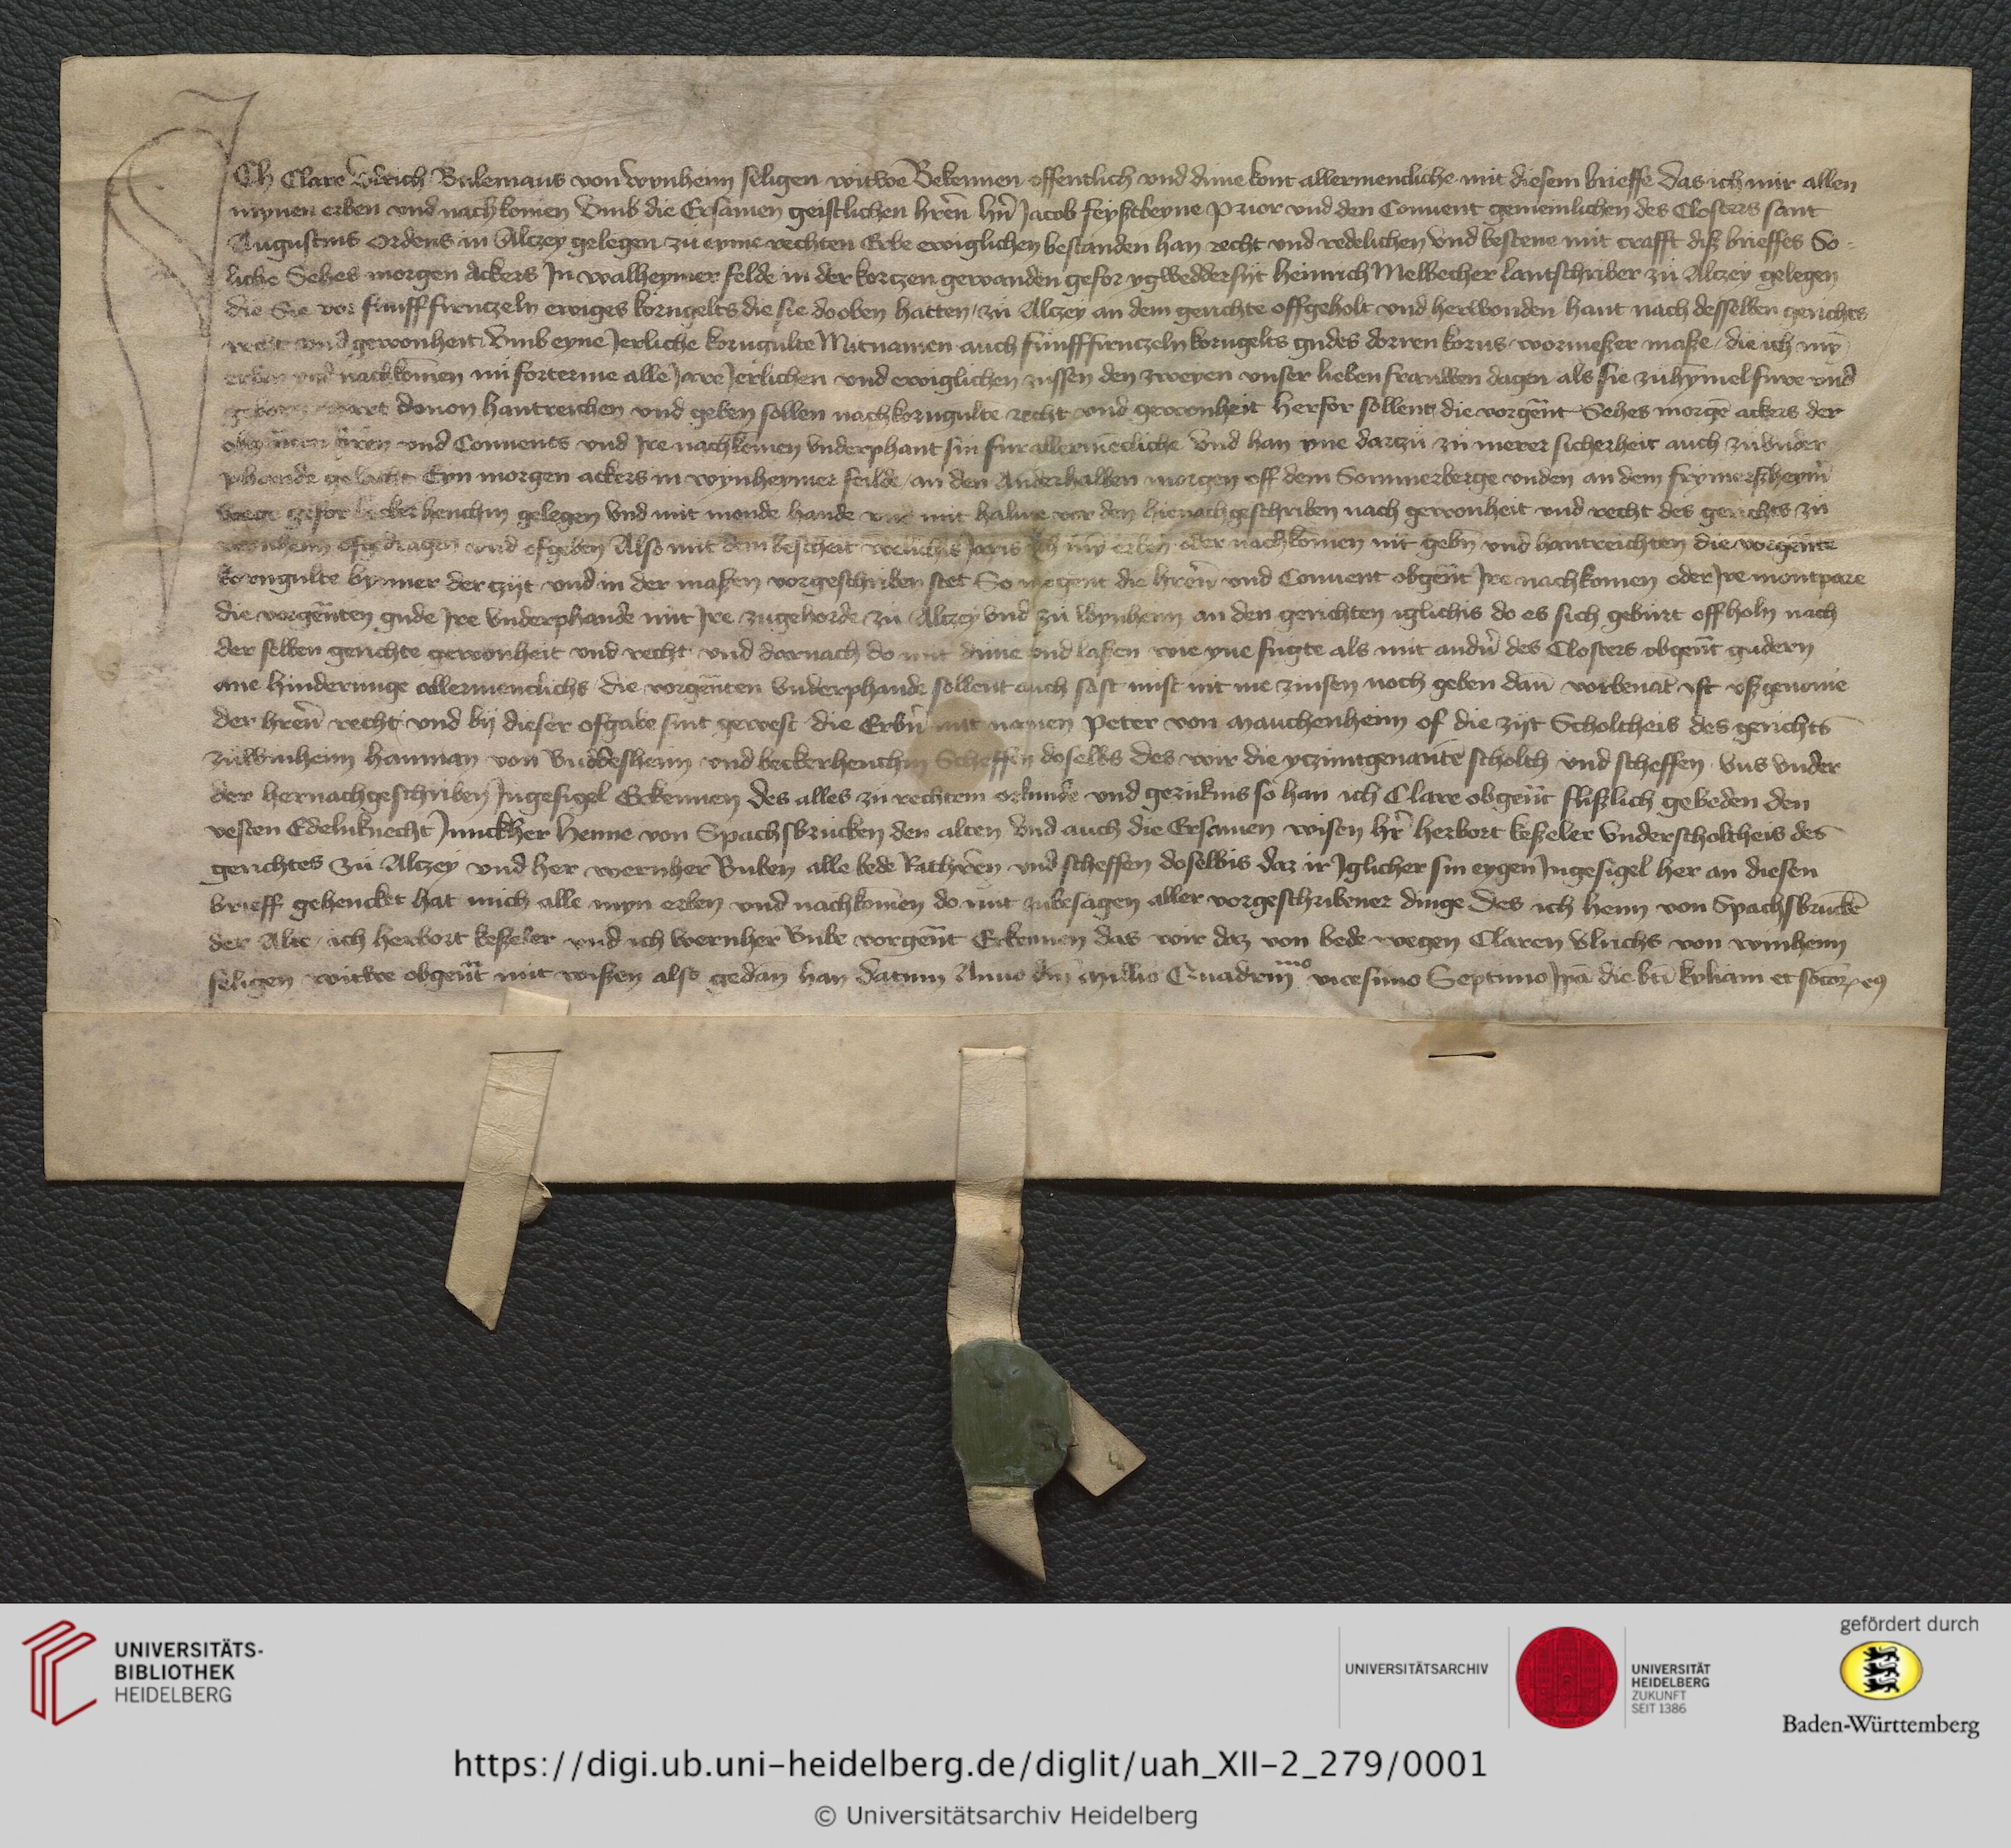 ICh Clare Ulrich Bulemans von wynheim seligen witwe Bekennen offentlich und dune kont allermencliche mit diesem brieffe Das ich mir allen
mynen erben und nachkomen Umb die Ersamen geistlichen hren hn Jacob feyßtbeyne Prior und den Convent gemeinlichen des Closters sant
Augustins Ordens in Alczey gelegen zu eyme rechten Erbe ewiglichen bestanden han recht und redelichen Und bestene mit crafft diß brieffes So-
liche Sehes morgen Ackers In walheymer felde in der kortzen gewanden gefor heinrich Melbecher lantschriber zu Alczey gelegen
die Sie vor funff firnczeln ewiges korngelts die sie do oben hatten zu Alczey an dem gerichte offgeholt und herwonden hant nach desselben gerichts
recht und gewonheit Umb eyne Jerliche korngulte Mitnamen auch funff firnczeln korngelts gudes dorren korns wormeßer maße die ich myn
erben und nachkomen nu forterme alle Jare Jerlichen und ewiglichen zussen den zweyen unser lieben frauwen dagen als sie zu hymel fure und
geborn wart dovon hantreichen und geben sollen nach korngulte recht und gewonheit herfor sollent die vorgent Sehes morgen ackers der
obgenten hren und Convents und Ire nachkomen underphant sin fur allermencliche Und han yne dartzu zu merer sicherheit auch zu under
phande gelacht Eyn morgen ackers in wynheymer feilde an den Anderhalben morgen off dem Sommerberge unden an dem frymerßheym
wege gefor becker henchin gelegen Und mit monde hande und mit halme vor den hienachgeschriben nach gewonheit und recht des gerichts zu
wynheim ofgedragen und ofgeben Also mit dem bescheit weliches Jaris ich myn erben oder nachkomen nit geben und hantreichten die vorgente
korngulte bynner der zijt und in der maßen vorgeschriben stet So mogent die hren und Convent obgent Ire nachkomen oder Ire montpare
die vorgenten gude Ire underphande mit Ire zugehorde zu Alczey und zu wynheim an den gerichten iglichis do es sich geburt offholn nach
der selben gerichte gewonheit und recht und darnach do mit dune und laßen wie yne fugte als mit andern des Closters obgent gudern
ane hinderunge allermenclichs die vorgenten underphande sollent auch sost nist nit me zinsen noch geben dan vorbenant ist ußgenome
der hren recht und bij dieser ofgabe sint gewest die Erbern mit namen Peter von Mauchenheim of die zijt Scholtheis des gerichts
zu winheim hanman von Buddesheim und beckerhenchin Scheffen doselbs Des wir die ytzuntgenanten scholth und scheffen uns under
der hernachgeschriben Ingesigel Erkennen des alles zu rechtem orkunde und gezuknis so han ich Clare obgent flißlich gebeden den
vesten Edelnknecht Junckher Henne von Spachsbrucken den alten Und auch die Ersamen wisen hr herbort keßeler Underscholtheis des
gerichtes zu Alczey und her wernher Buben alle bede Rathren und scheffen doselbis daz ir Iglicher sin eygen Ingesigel her an diesen
brieff gehencket hat mich alle myn erben und nachkomen do mit zubesagen aller vorgeschribener dinge Des ich henn von Spachsbrucken
der Alte ich herbort keßeler und ich wernher Bube vorgent Erkennen das wir daz von bede wegen Claren Ulrichs von winheim
seligen witwe obgent mit wißen also gedan han Datum Anno dni Millio Quadrinmo vicesimo Septimo Ipa die bti kyliani et socor eq
UNIVERSITÄTS-
BIBLIOTHEK
HEIDELBERG
UNIVERSITÄTSARCHIV
UNIVERSITÄT
HEIDELBERG
ZUKUNFT
SEIT 1386
gefördert durch
Baden-Württemberg
https://digi.ub.uni-heidelberg.de/diglit/uah_XII-2_279/0001
© Universitätsarchiv Heidelberg